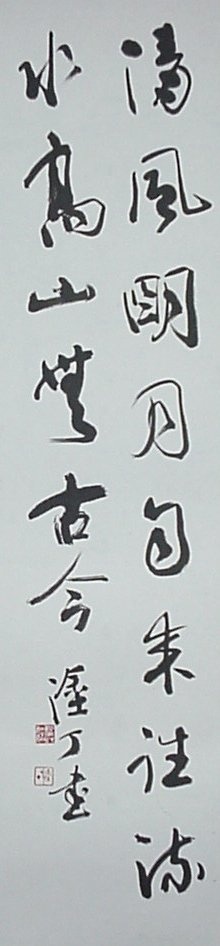 清風明月自来往流
水高山無古今
丁書